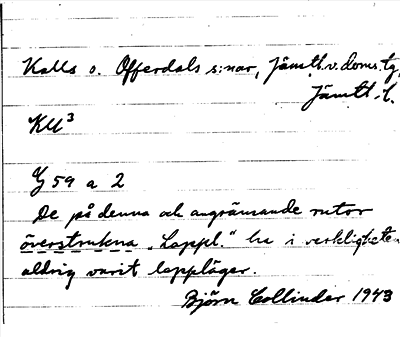 Kalls o. Offerdals s:nar, Jämtl. v. doms. tg,
Jämtl. l.
KU³
G 59 a 2
De på denna och angränsande rutor
överstrukna „Lappl." ha i verkligheten
aldrig varit lappläger.
Björn Collinder 1943